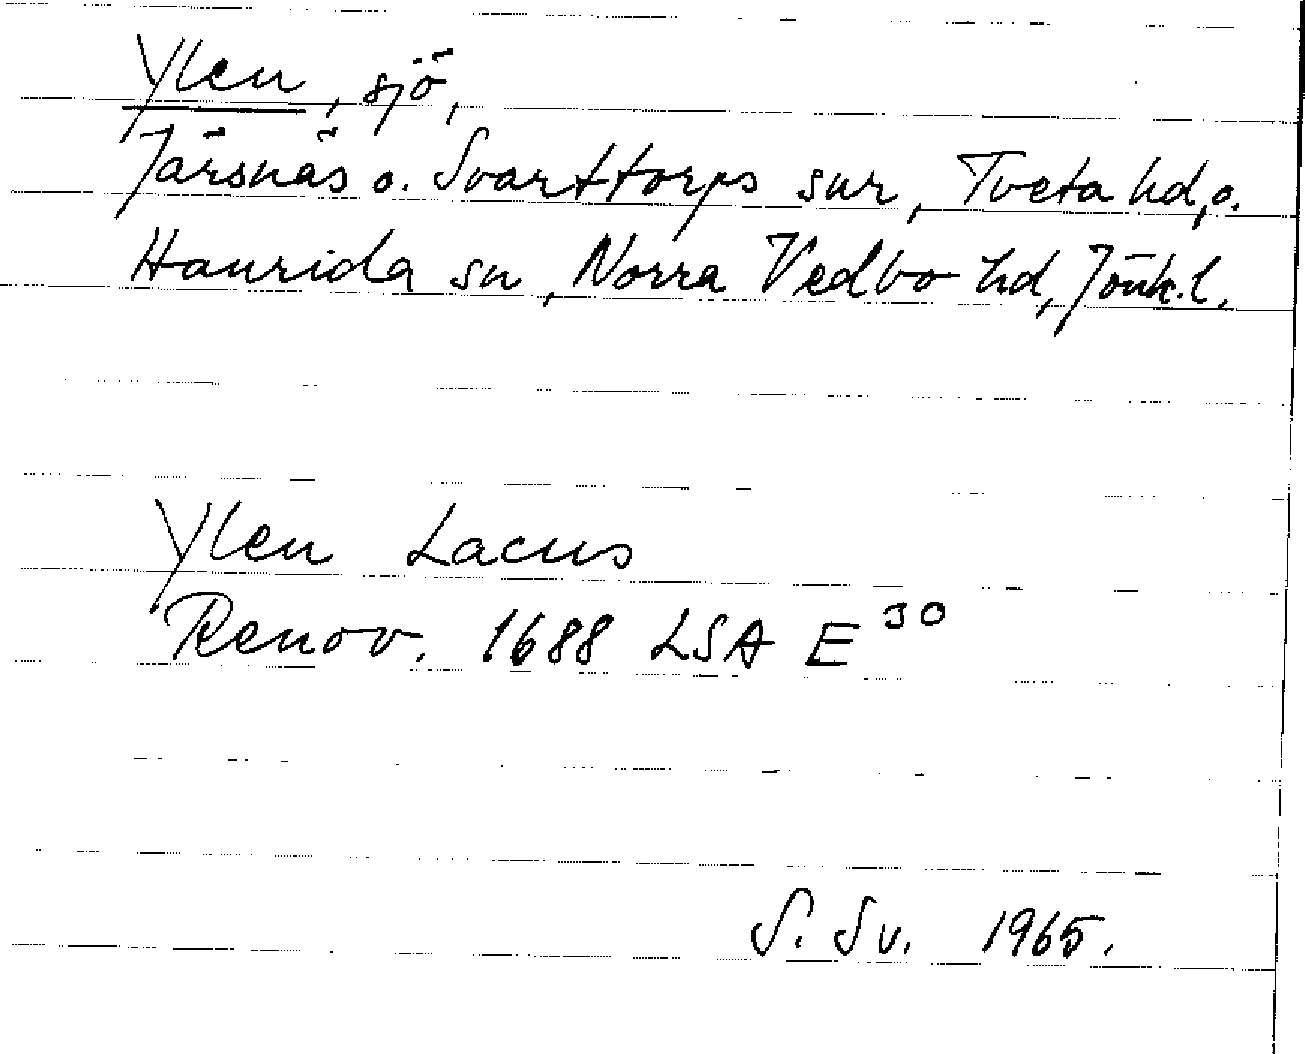 Ylen, sjö,
Järsnäs o. Svarttorps snr, Tveta hd, o.
Haurida sn, Norra Vedbo hd, Jönk.l.
Ylen Lacus
Renov. 1688 LSA E 30
S. Sv. 1965.